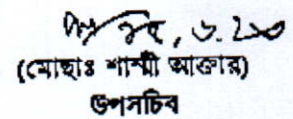 (মোছাঃ শাম্মী আক্তার)
উপসচিব